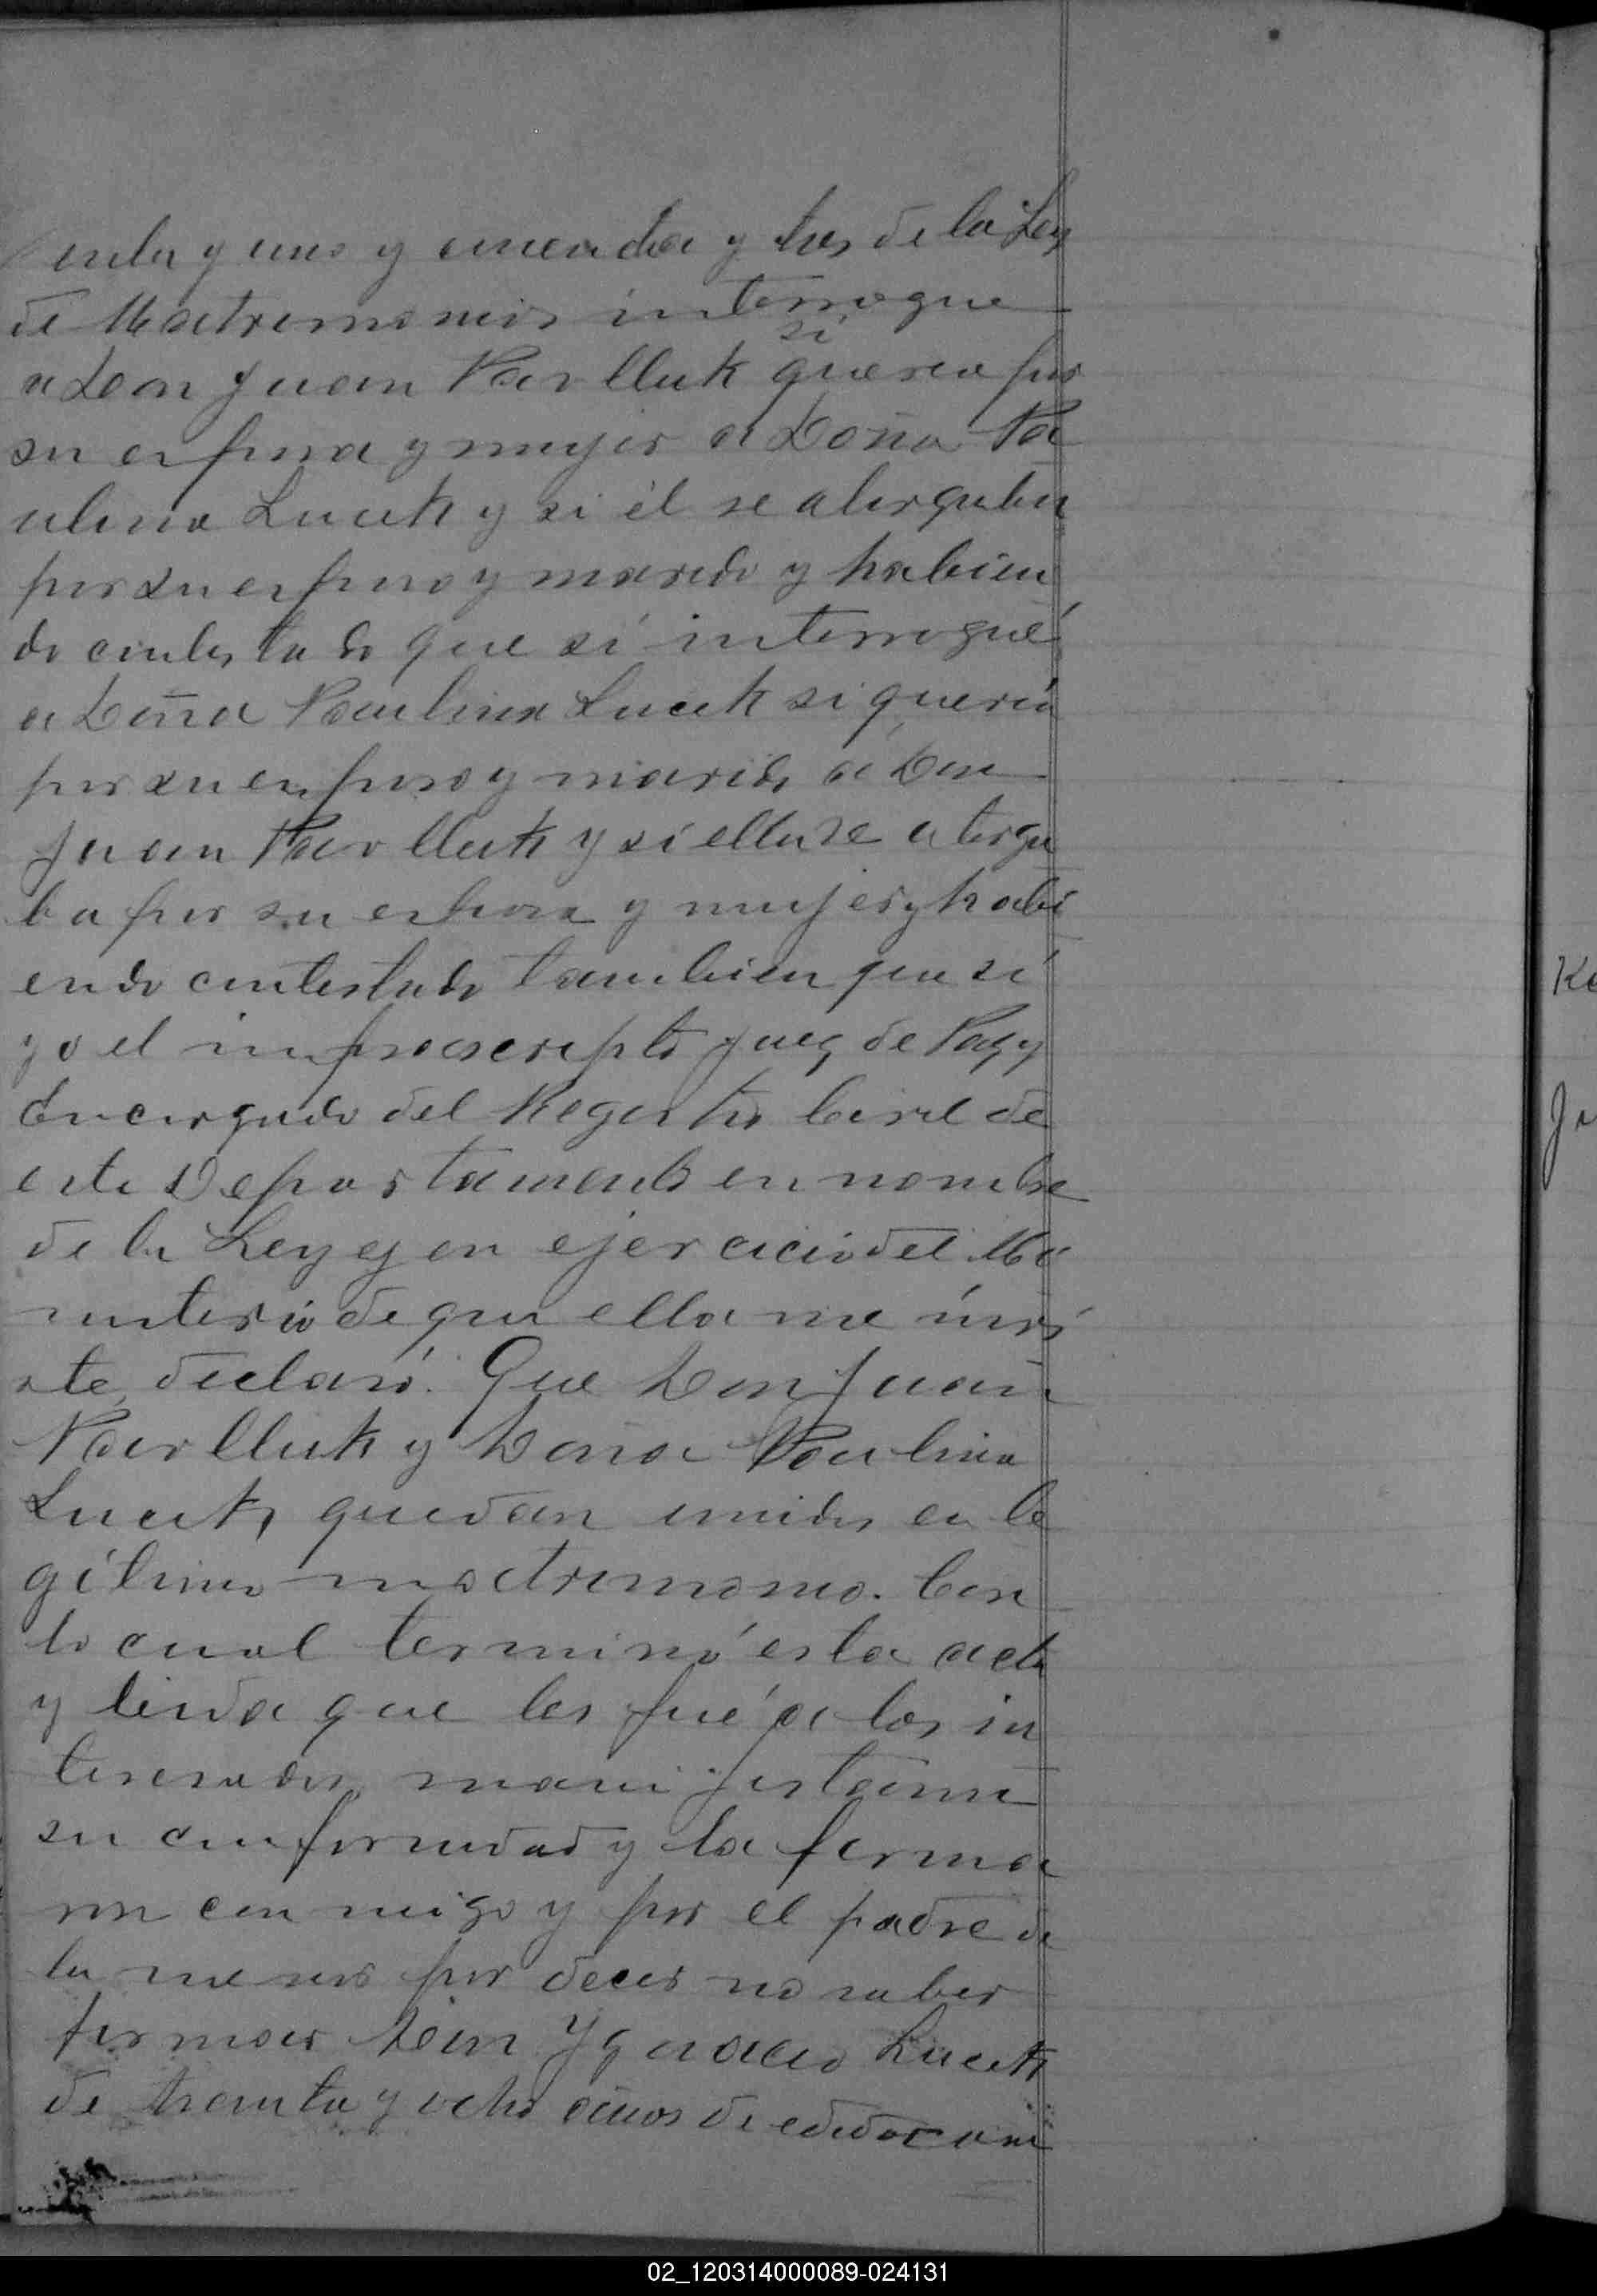 cuenta y uno y cincuenta y tres de la Ley
de Matrimonios interrogue
a Don Juan Pavlluk si queria por
su esposa y mujer a Doña Pa
ulina Lucek y si él se otorgaba
por su esposo y marido y habien
do contestado que sí interrogué
a Doña Paulina Lucek si quería
por su esposo y marido á Don
Juan Pavlluk y si ella se otorga
ba por su esposa y mujer y habi
endo contestado tambien que sí
yo el infrascripto Juez de Paz y
Encargado del Registro Civil de
este Departamento en nombre
de la Ley y en ejercicio del Mi
nisterio de que ella me invi
ste, declaró. Que Don Juan
Pavlluk y Doña Paulina
Lucek, quedan unidos en le
gítimo matrimonio. Con
lo cual terminó esta acta
y leida que les fué a los in
teresados, manifestaron
su conformidad y la firma
ron con migo y por el padre de
la menor por decir no saber
firmar Don Ygnacio Lucek
de treinta y ocho años de edad casa
Ju
02_120314000089-024131